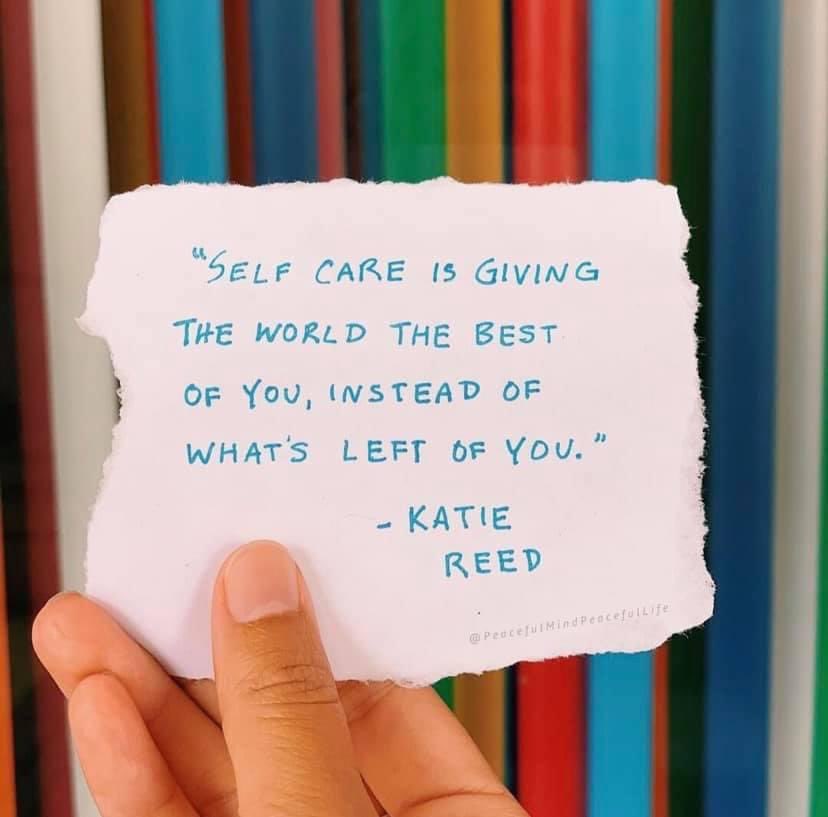 "SELF CARE IS GIVING
THE WORLD THE BEST
OF YOU, INSTEAD OF
WHAT'S LEFT OF YOU."
- KATIE
REED
@PeacefulMindPeacefulLife